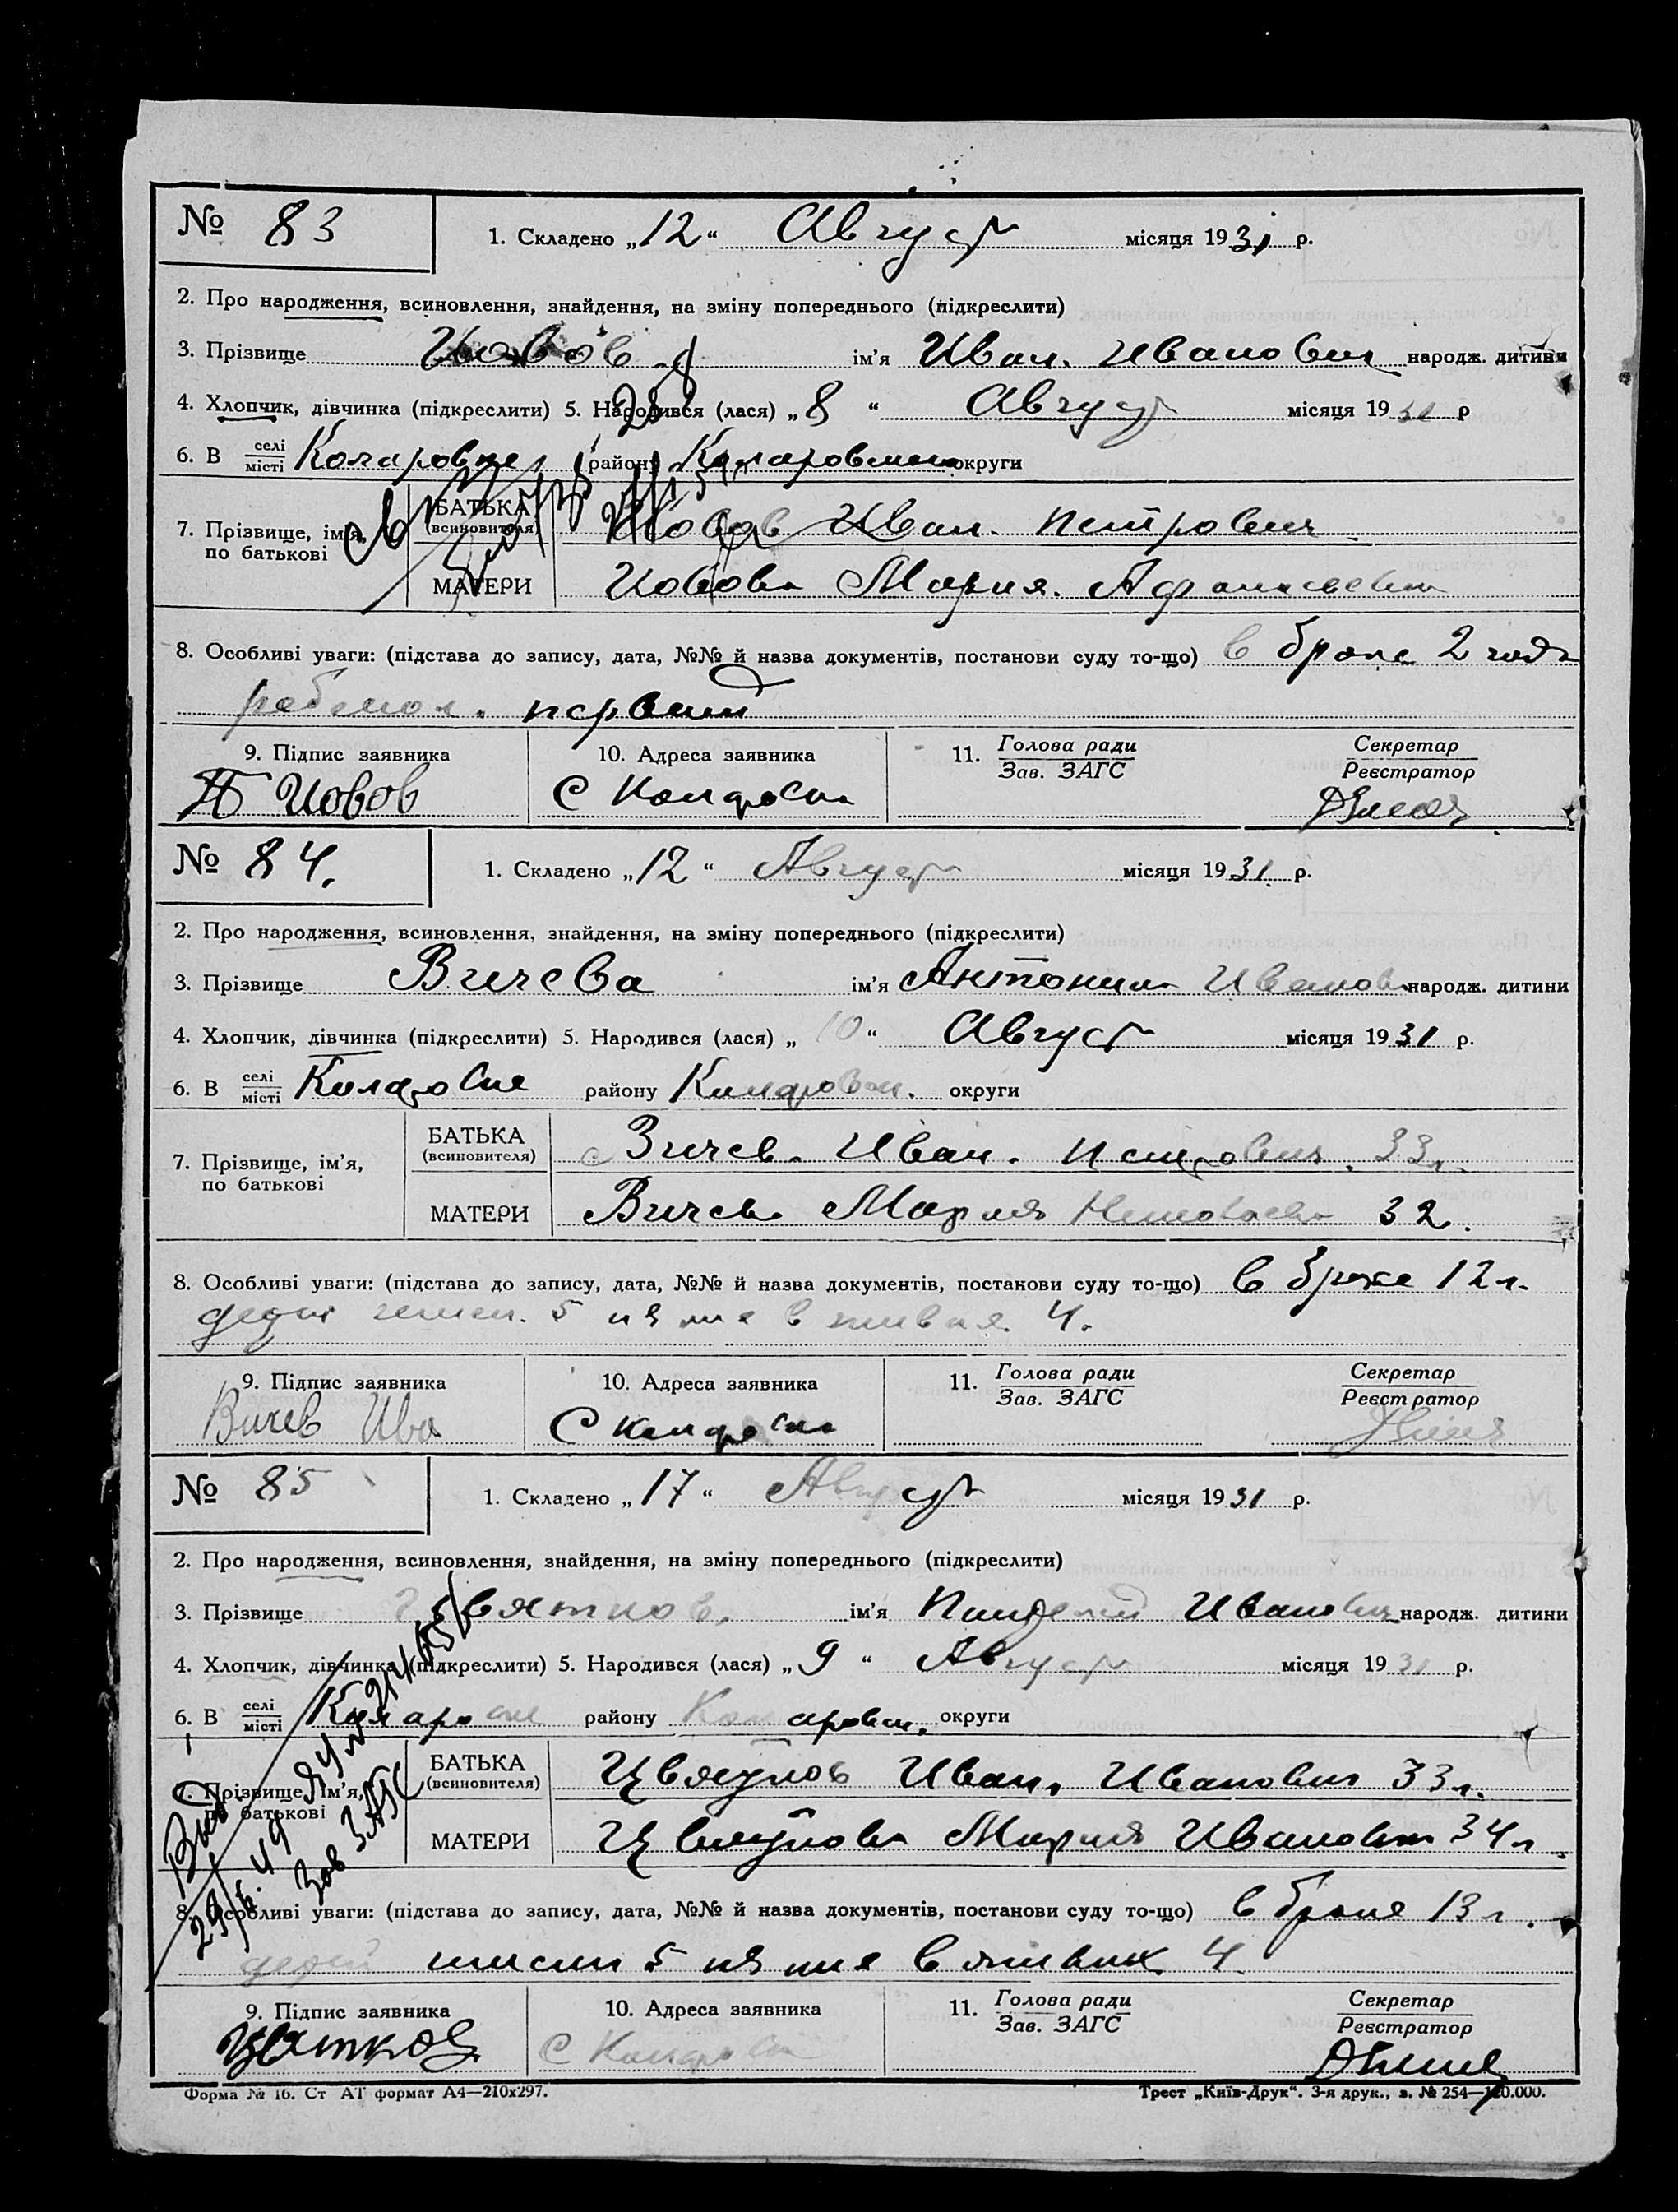 № 83 1. Складено „12“ Август місяця 1931 р.
2. Про народження, всиновлення, знайдення, на зміну попереднього (підкреслити)
3. Прізвище Иовов ім’я Иван. Иванович народж. дитини
4. Хлопчик, дівчинка (підкреслити) 5. Народився (лася) „8“ Август місяця 1931 р
6. В селі/місті Коларовке району Коларовском округи
7. Прізвище, ім’я, по батькові
БАТЬКА (всиновителя) Иовов Иван. Петрович
МАТЕРИ Иовова Мария. Афанасьевна
8. Особливі уваги: (підстава до запису, дата, №№ й назва документів, постанови суду то-що) в браке 2 года
первый
9. Підпис заявника 10. Адреса заявника 11. Голова ради/Зав. ЗАГС Секретар/Реєстратор
Иовов С Коларовка
№ 84. 1. Складено „12“ Август місяця 1931 р.
2. Про народження, всиновлення, знайдення, на зміну попереднього (підкреслити)
3. Прізвище Вичева ім’я Антонина Иванов народж. дитини
4. Хлопчик, дівчинка (підкреслити) 5. Народився (лася) „10“ Август місяця 1931 р.
6. В селі/місті Коларовке району Коларовск. округи
7. Прізвище, ім’я, по батькові
БАТЬКА (всиновителя) Вичев. Иван. Петрович. 33 л.
МАТЕРИ Вичева Мария Николаевна 32.
8. Особливі уваги: (підстава до запису, дата, №№ й назва документів, постанови суду то-що) в браке 12 л.
детей 5 из них в живых. 4.
9. Підпис заявника 10. Адреса заявника 11. Голова ради/Зав. ЗАГС Секретар/Реєстратор
Вичев Ива С Коларовка
№ 85 1. Складено „17“ Август місяця 1931 р.
2. Про народження, всиновлення, знайдення, на зміну попереднього (підкреслити)
3. Прізвище Цвятков. ім’я Панделей Иванович народж. дитини
4. Хлопчик, дівчинка (підкреслити) 5. Народився (лася) „9“ Август місяця 1931 р.
6. В селі/місті Коларовке району Коларовск. округи
7. Прізвище, ім’я, по батькові
БАТЬКА (всиновителя) Цвятков Иван. Иванович 33 л.
МАТЕРИ Цвяткова Мария Ивановна 34 л.
8. Особливі уваги: (підстава до запису, дата, №№ й назва документів, постанови суду то-що) в браке 13 л.
детей числом 5 из них в живых. 4
9. Підпис заявника 10. Адреса заявника 11. Голова ради/Зав. ЗАГС Секретар/Реєстратор
Цвятков С Коларовка
Форма № 16. Ст АТ формат А4—210x297. Трест „Київ-Друк“. 3-я друк., з. № 254—120.000.
Зав ЗАГС